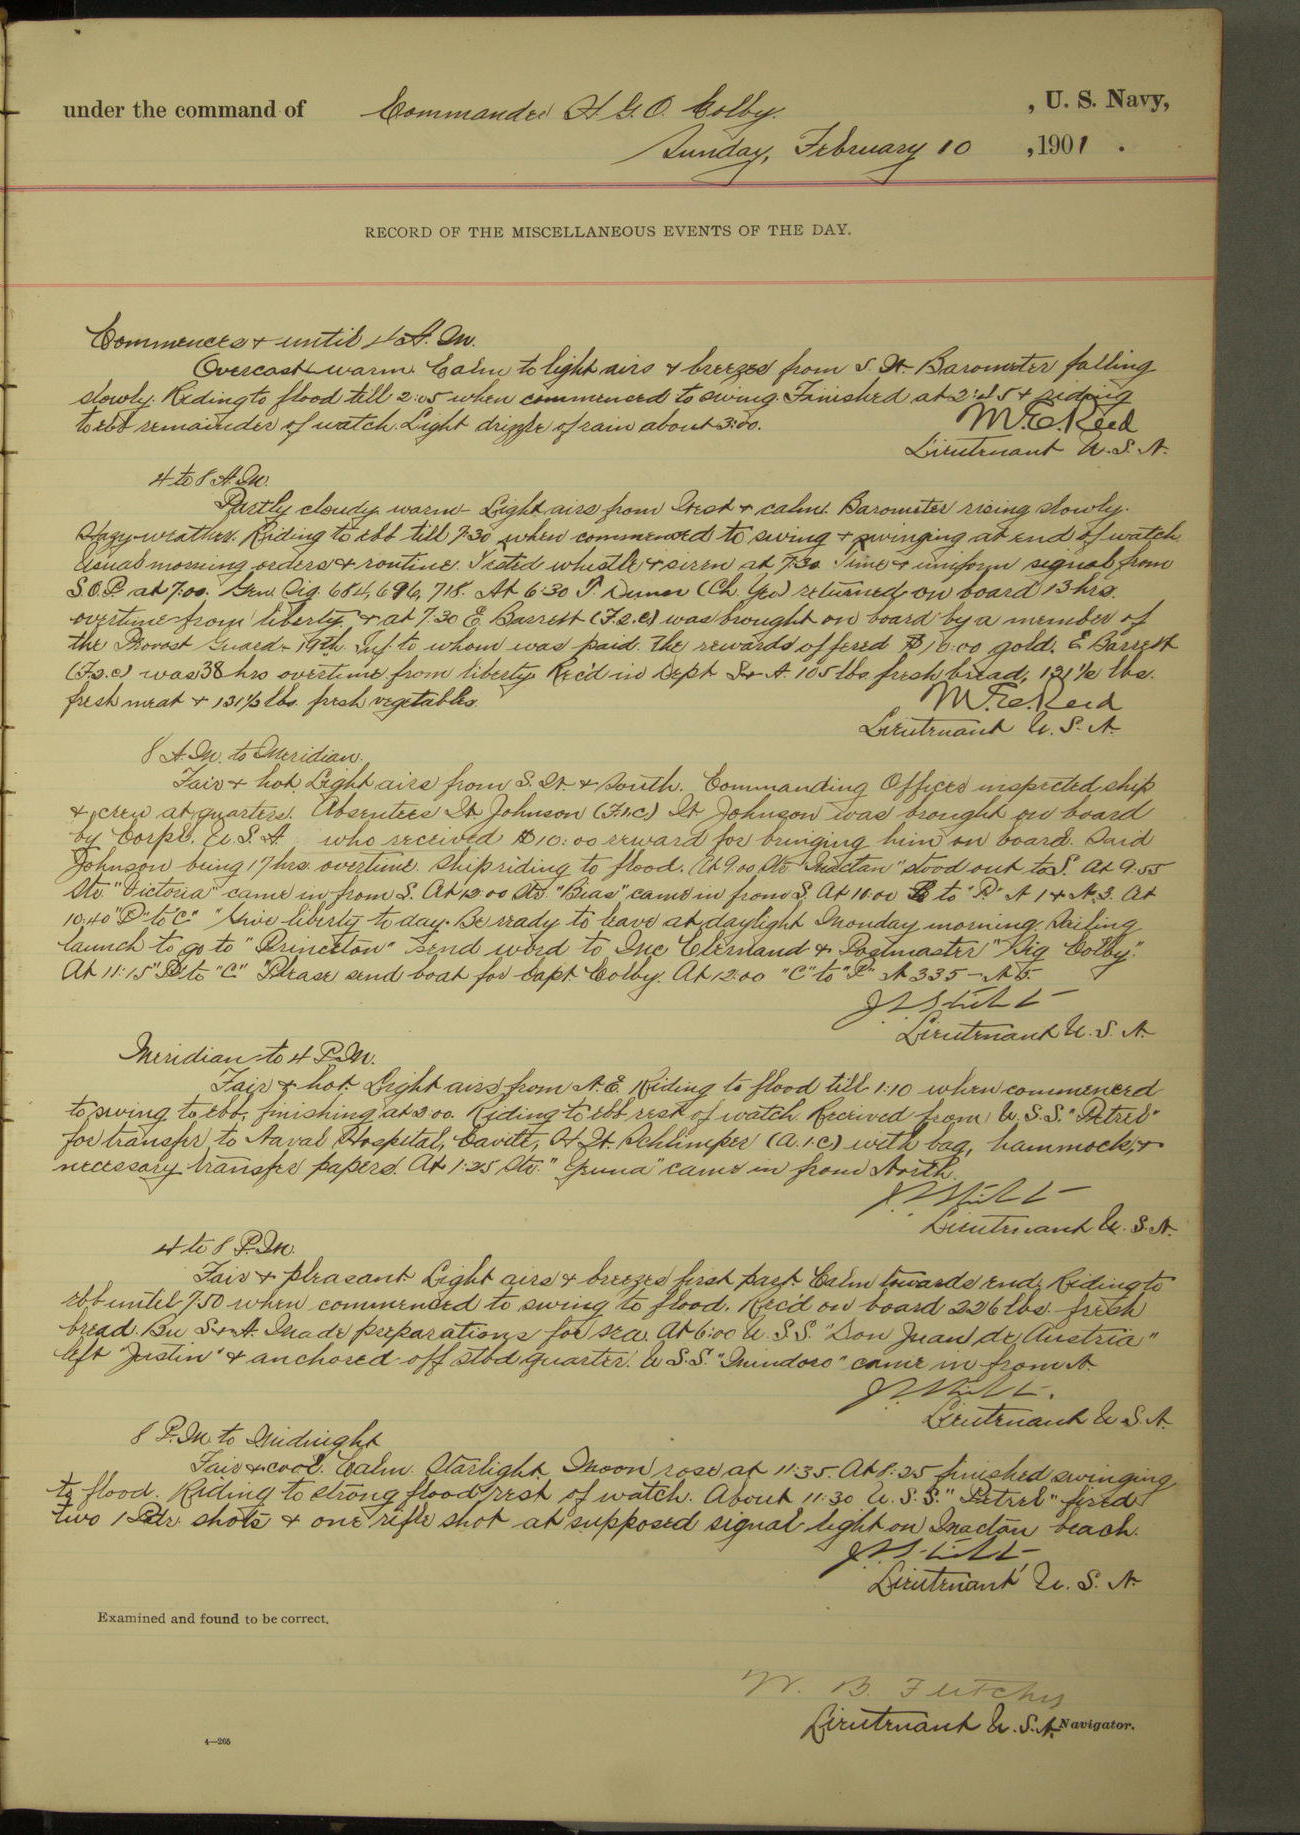 under the command of Commander H. G. O. Colby. , U. S. Navy,
Sunday, February 10 , 1901 .
RECORD OF THE MISCELLANEOUS EVENTS OF THE DAY.
Commences & until 4 A. M.
Overcast & warm. Calm to light airs & breezes from S. W. Barometer falling
slowly. Riding to flood till 2:05 when commenced to swing. Finished at 2:45 & riding
to ebb remainder of watch. Light drizzle of rain about 3:00.
M. E. Reed
Lieutenant U. S. N.
4 to 8 A. M.
Partly cloudy & warm. Light airs from West & calm. Barometer rising slowly.
Hazy weather. Riding to ebb till 7:30 when commenced to swing & swinging at end of watch.
Usual morning orders & routine. Tested whistle & siren at 7:30. Time & uniform signal from
S.O.P. at 7:00. Gen. Sig. 684, 696, 718. At 6:30 T. (Ch. Yeo) returned on board 13 hrs.
overtime from liberty, & at 7:30 E. Barrett (F.2.c) was brought on board by a member of
the Provost Guard - 19th Inf. to whom was paid the rewards offered $10.00 gold. E. Barrett
(F.2.c) was 38 hrs overtime from liberty. Rec'd in Dept S & A. 105 lbs fresh bread, 131½ lbs.
fresh meat & 131½ lbs. fresh vegetables.
M. E. Reed
Lieutenant U. S. N.
8 A. M. to Meridian.
Fair & hot. Light airs from S. W. & South. Commanding Officer inspected ship
& crew at quarters. Absentees W. Johnson (F.1.c) W. Johnson was brought on board
by Corpl. U. S. A. who received $10:00 reward for bringing him on board. Said
Johnson being 17 hrs. overtime. Ship riding to flood. At 9:00 Str. "Mactan" stood out to S. At 9:55
Str. "Victoria" came in from S. At 10:00 Str. "Bias" came in from S. At 10:00 to "P" N 1 & N. 3. At
10:40 "P" to "C" "Give liberty to day. Be ready to leave at daylight Monday morning. Sailing
launch to go to "Princeton" Send word to Mc Clernand & Postmaster" Sig "Colby."
At 11:15 "P" to "C" "Please send boat for Capt. Colby. At 12:00 "C" to "P" N 335 - N 5.
Lieutenant U. S. N.
Meridian to 4 P. M.
Fair & hot. Light airs from N. E. Riding to flood till 1:10 when commenced
to swing to ebb, finishing at 2:00. Riding to ebb rest of watch. Received from U. S. S. "Petrel"
for transfer to Naval Hospital, Cavite, H. W. Schlimper (A. 1.C) with bag, hammock, &
necessary transfer papers. At 1:25 Str. came in from North.
Lieutenant U. S. N.
4 to 8 P. M.
Fair & pleasant. Light airs & breezes first part. Calm towards end. Riding to
ebb until 7:50 when commenced to swing to flood. Rec'd on board 226 lbs. fresh
bread. Bu S & A. Made preparations for sea. At 6:00 U. S. S. "Don Juan de Austria"
left "Justin" & anchored off stbd quarter. U. S. S. "Mindoro" came in from N.
Lieutenant U. S. N.
8 P. M. to Midnight
Fair & cool. Calm. Starlight. Moon rose at 11:35. At 8:25 finished swinging
to flood. Riding to strong flood rest of watch. About 11:30 U. S. S. "Petrel" fired
two 1 Pdr. shots & one rifle shot at supposed signal light on Mactan beach.
Lieutenant U. S. N.
Examined and found to be correct.
W. B. Fletcher
Lieutenant U. S. N. Navigator.
4—265